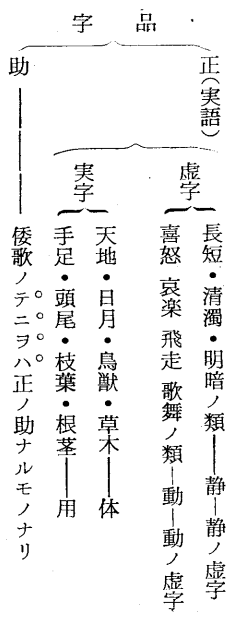 字品
正(実語)
虚字
長短・清濁・明暗ノ類――静―静ノ虚字
喜怒 哀楽 飛走 歌舞ノ類―動―動ノ虚字
実字
天地・日月・鳥獣・草木――体
手足・頭尾・枝葉・根茎――用
助――――倭歌ノテニヲハ正ノ助ナルモノナリ